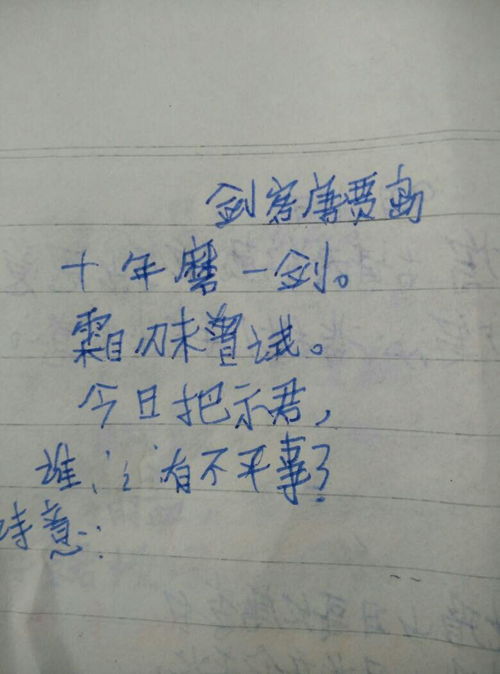 剑客唐贾岛
十年磨一剑。
霜刃未曾试。
今日把示君，
谁有不平事？
诗意：